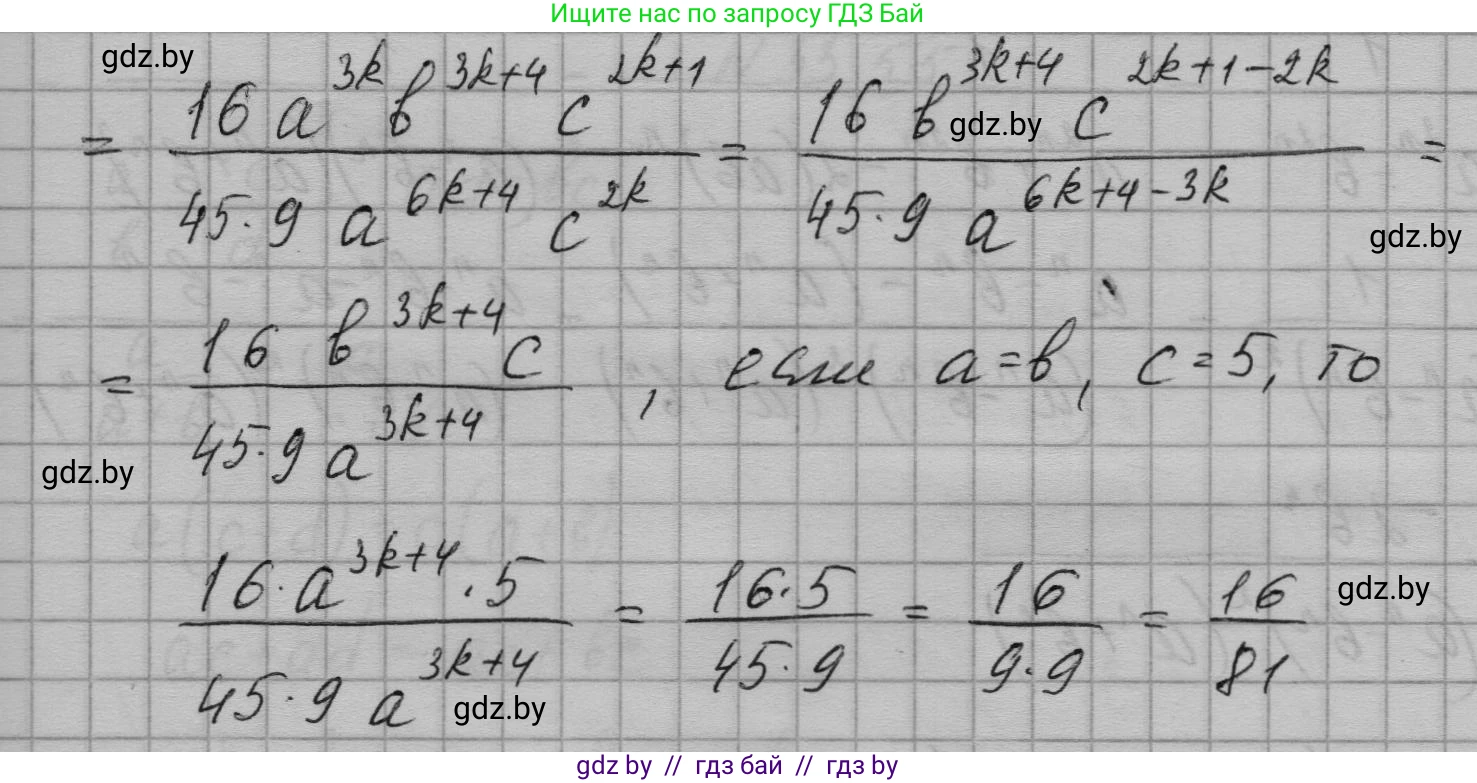 Ищите нас по запросу ГДЗ Бай
gdz.by
= \frac{16 a^{3k} b^{3k+4} c^{2k+1}}{45·9 a^{6k+4} c^{2k}} = \frac{16 b^{3k+4} c^{2k+1-2k}}{45·9 a^{6k+4-3k}} =
gdz.by
gdz.by
= \frac{16 b^{3k+4} c}{45·9 a^{3k+4}}, если a=b, c=5, то
gdz.by
\frac{16·a^{3k+4}·5}{45·9 a^{3k+4}} = \frac{16·5}{45·9} = \frac{16}{9·9} = \frac{16}{81}
gdz.by
gdz.by
gdz by // гдз бай // гдз by